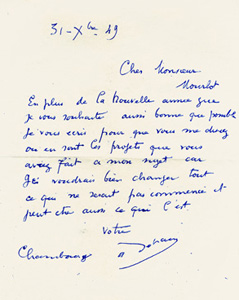 31 - Xbre 49
Cher Monsieur
Mourlot
En plus de la Nouvelle annee que
je vous souhaite aussi bonne que possible
je vous ecris pour que vous me disiez
ou en sont les projets que vous
aviez fait a mon sujet car
je voudrais bien changer tout
ce qui ne serait pas commencé et
peut etre aussi ce qui l'est
votre
Chambourcy